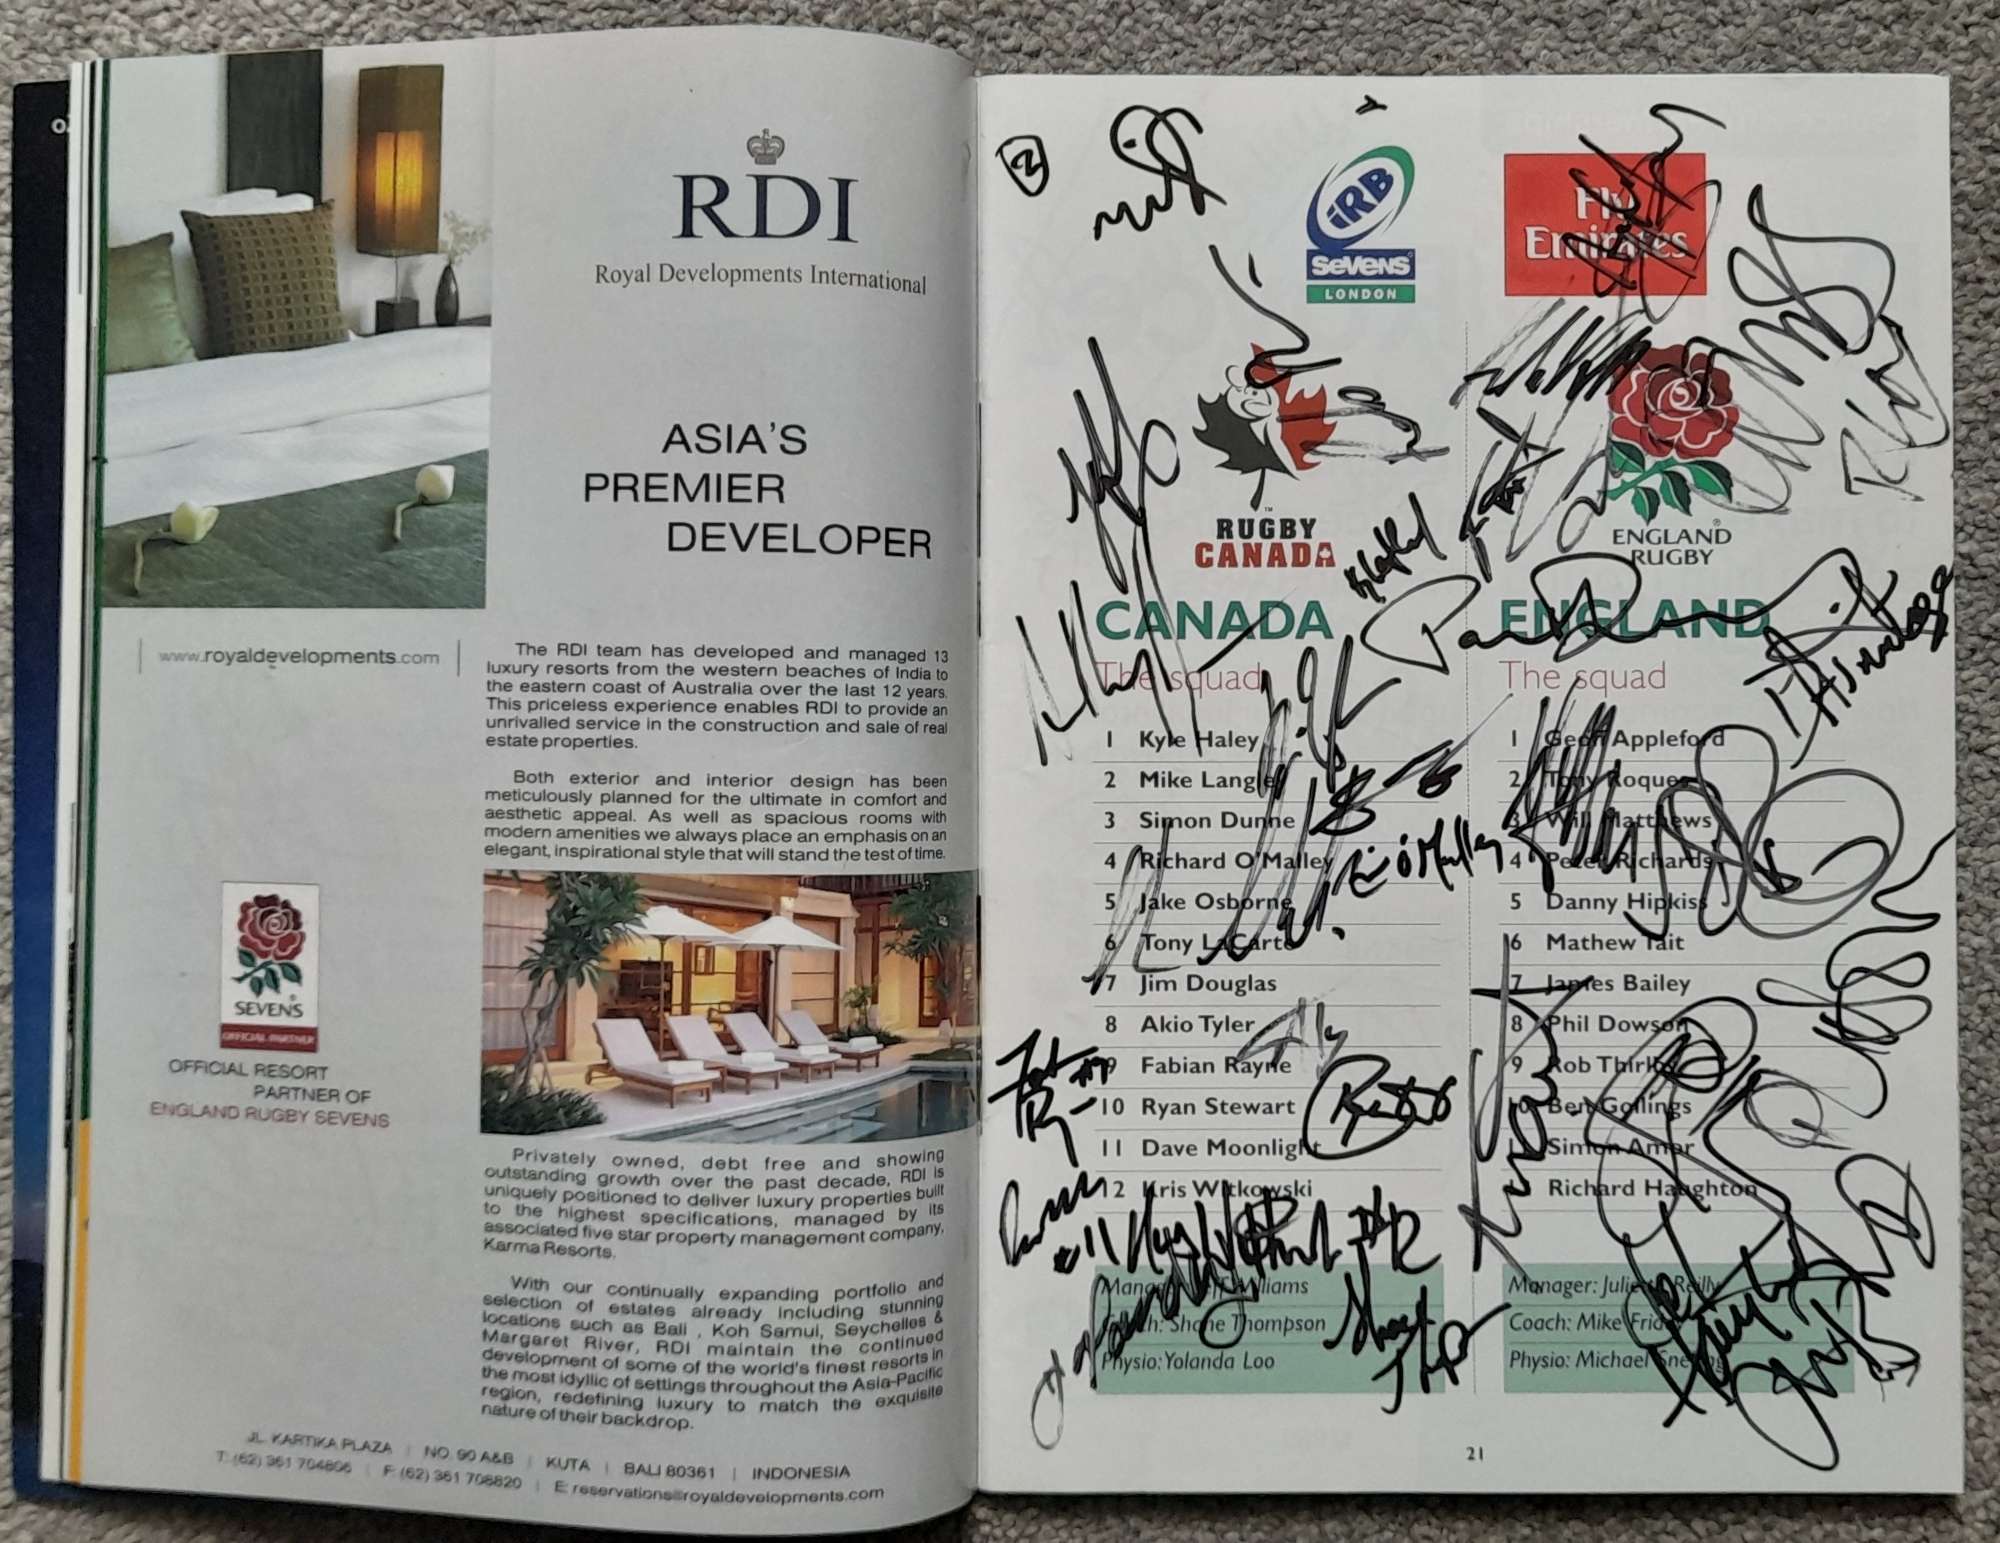 RDI
Royal Developments International
ASIA'S
PREMIER
DEVELOPER
www.royaldevelopments.com
The RDI team has developed and managed 13
luxury resorts from the western beaches of India to
the eastern coast of Australia over the last 12 years.
This priceless experience enables RDI to provide an
unrivalled service in the construction and sale of real
estate properties.
Both exterior and interior design has been
meticulously planned for the ultimate in comfort and
aesthetic appeal. As well as spacious rooms with
modern amenities we always place an emphasis on an
elegant, inspirational style that will stand the test of time.
SEVENS
OFFICIAL PARTNER
OFFICIAL RESORT
PARTNER OF
ENGLAND RUGBY SEVENS
Privately owned, debt free and showing
outstanding growth over the past decade, RDI is
uniquely positioned to deliver luxury properties built
to the highest specifications, managed by its
associated five star property management company,
Karma Resorts.
With our continually expanding portfolio and
selection of estates already including stunning
locations such as Bali , Koh Samui, Seychelles &
Margaret River, RDI maintain the continued
development of some of the world's finest resorts in
the most idyllic of settings throughout the Asia-Pacific
region, redefining luxury to match the exquisite
nature of their backdrop.
JL. KARTIKA PLAZA | NO. 90 A&B | KUTA | BALI 80361 | INDONESIA
T: (62) 361 704806 | F: (62) 361 708820 | E: reservations@royaldevelopments.com
2
iRB
SEVENS
LONDON
Fly
Emirates
RUGBY
CANADA
ENGLAND
RUGBY
CANADA
The squad
1 Kyle Haley
2 Mike Langley
3 Simon Dunne
4 Richard O'Malley
5 Jake Osborne
6 Tony LaCarte
7 Jim Douglas
8 Akio Tyler
9 Fabian Rayne
10 Ryan Stewart
11 Dave Moonlight
12 Kris Witkowski
Manager: Jeff Williams
Coach: Shane Thompson
Physio: Yolanda Loo
ENGLAND
The squad
1 Geoff Appleford
2 Tony Roques
3 Will Matthews
4 Peter Richards
5 Danny Hipkiss
6 Mathew Tait
7 James Bailey
8 Phil Dowson
9 Rob Thirlby
10 Ben Gollings
Simon Amor
Richard Haughton
Manager: Juliette Reilly
Coach: Mike Friday
Physio: Michael Snelling
O'Malley
#9
#11
#12
21